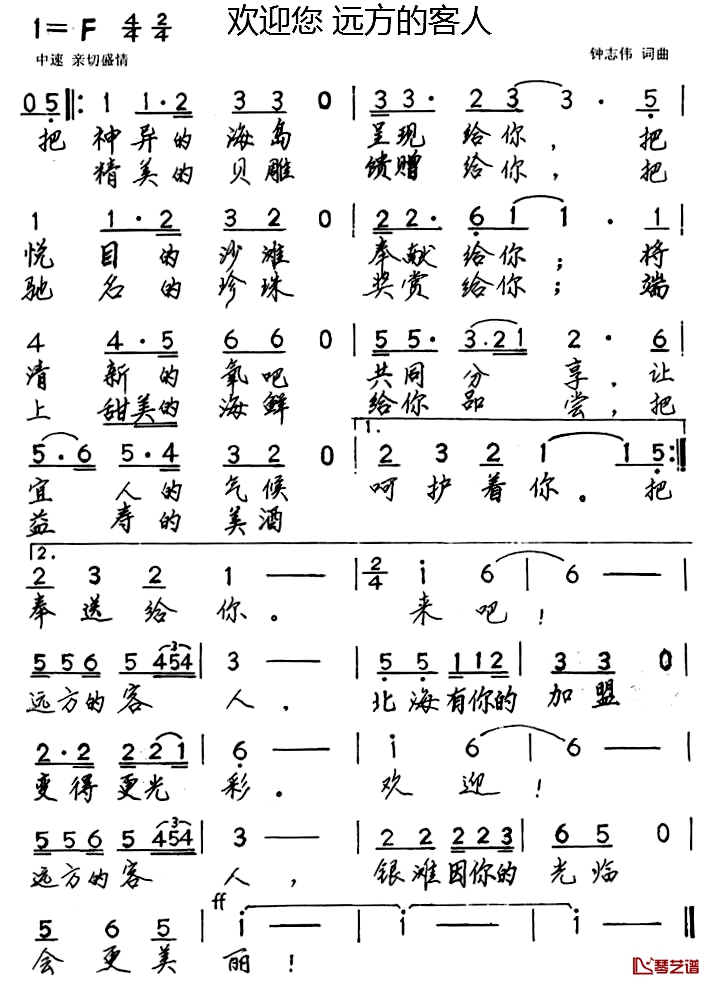 欢迎您 远方的客人
1=F 4/4 2/4
中速 亲切盛情
钟志伟 词曲
0 5 ‖: 1 1·2 3 3 0 | 3 3· 2 3 3· 5 |
把 神异的 海岛 呈现 给你，把
精美的 贝雕 馈赠 给你，把
1 1·2 3 2 0 | 2 2· 6 1 1· 1 |
悦 目的 沙滩 奉献 给你；将
驰 名的 珍珠 奖赏 给你；端
4 4·5 6 6 0 | 5 5· 3·21 2· 6 |
清 新的 氧吧 共同 分享，让
上 甜美的 海鲜 给你 品尝，把
1.
5·6 5·4 3 2 0 | 2 3 2 1 1 5 :‖
宜 人的 气候 呵护着你。把
益 寿的 美酒
2.
2 3 2 1 — | 2/4 i 6 | 6 — |
奉送给你。 来吧！
5 5 6 5 4 5 4 | 3 — | 5 5 1 1 2 | 3 3 0 |
3
远方的客 人， 北海有你的 加盟
2·2 2 2 1 | 6· | i 6 | 6 — |
变得更光 彩。 欢迎！
5 5 6 5 4 5 4 | 3 — | 2 2 2 2 3 | 6 5 0 |
3
远方的客 人， 银滩因你的 光临
ff
5 6 5 | i — | i — | i — ‖
会更美 丽！
琴艺谱